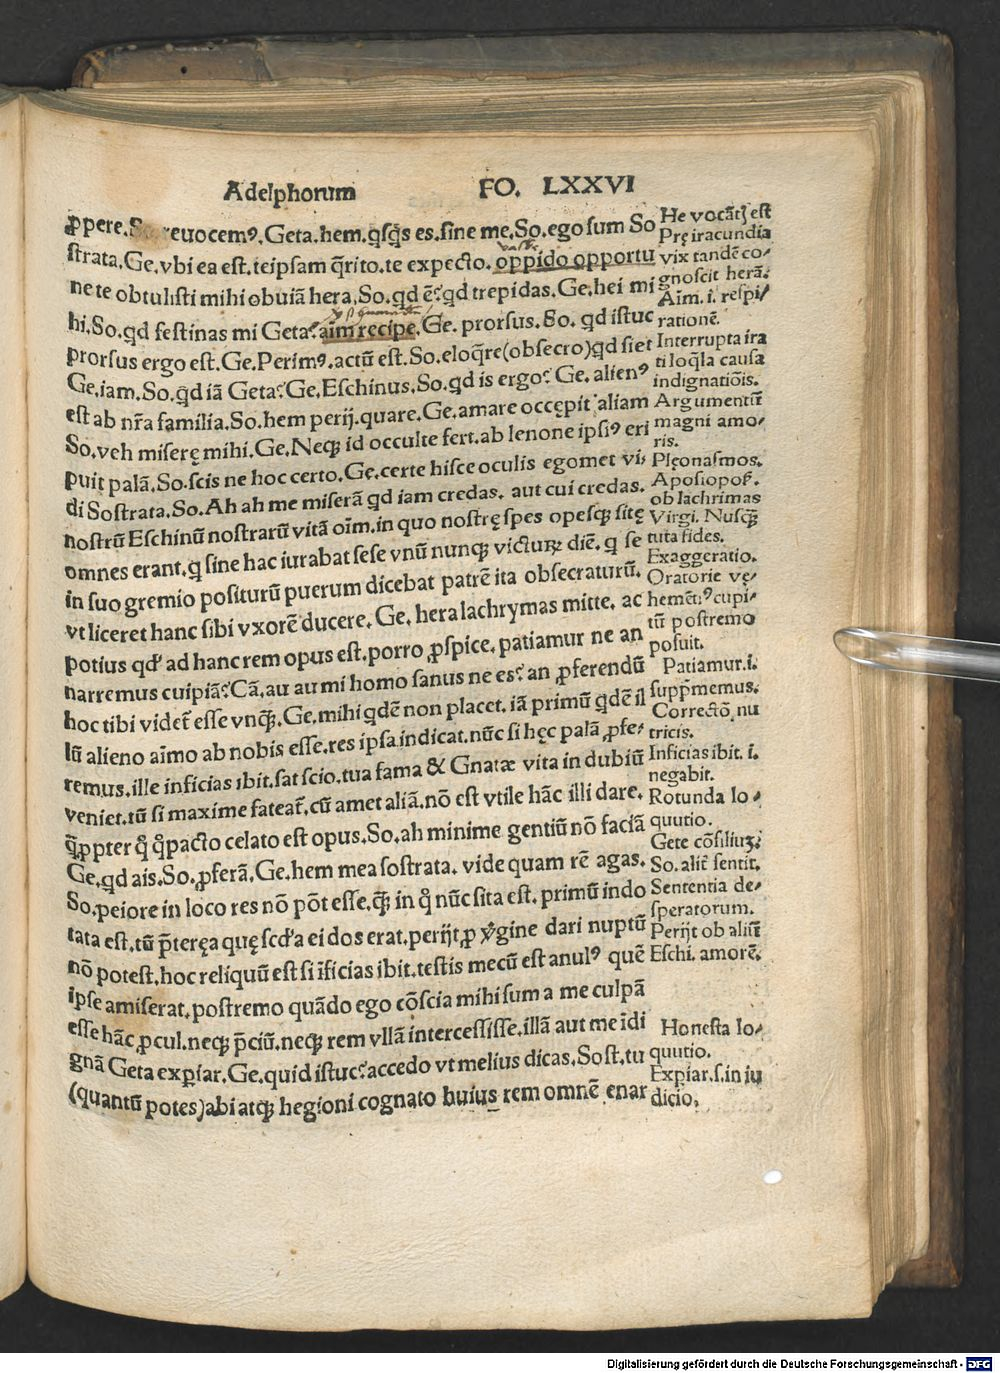 Adelphorum FO. LXXVI
ꝓpere. S reuocemꝰ. Geta. hem. qſq̃s es. ſine me. So. ego ſum So
ſtrata. Ge. vbi ea eſt. teipſam q̃rito. te expecto. oppido opportu
ne te obtuliſti mihi obuiã hera. So. qd ẽ? qd trepidas. Ge. hei mi
hi. So. qd feſtinas mi Geta? aĩm recipe. Ge. prorſus. So. qd iſtuc
prorſus ergo eſt. Ge. Perimꝰ. actũ eſt. So. eloq̃re (obſecro) qd ſiet
Ge. iam. So. qd iã Geta? Ge. Eſchinus. So. qd is ergo? Ge. alienꝰ
eſt ab nr̃a familia. So. hem perij. quare. Ge. amare occępit aliam
So. veh miſerę mihi. Ge. Neqꝫ id occulte fert. ab lenone ipſꝰ eri
puit palã. So. ſcis ne hoc certo. Ge. certe hiſce oculis egomet vi
di Soſtrata. So. Ah ah me miſerã qd iam credas. aut cui credas.
noſtrũ Eſchinũ noſtrarũ vitã oĩm. in quo noſtrę ſpes opeſqꝫ ſitę
omnes erant. q ſine hac iurabat ſeſe vnũ nunqꝫ victurꝫ diẽ. q ſe
in ſuo gremio poſiturũ puerum dicebat patrẽ ita obſecraturũ.
vt liceret hanc ſibi vxorẽ ducere. Ge. hera lachrymas mitte. ac
potius qd' ad hanc rem opus eſt. porro ꝓſpice. patiamur ne an
narremus cuipiã? Cã. au au mi homo ſanus ne es? an ꝓferendũ
hoc tibi videt̃ eſſe vnqꝫ. Ge. mihi qdẽ non placet. iã primũ qdẽ il
lũ alieno aĩmo ab nobis eſſe. res ipſa indicat. nũc ſi hęc palã ꝓfe
remus. ille inficias ibit. ſat ſcio. tua fama & Gnatæ vita in dubiũ
veniet. tũ ſi maxime fateat̃. cũ amet aliã. nõ eſt vtile hãc illi dare.
q̃ꝓpter q̊ q̊pacto celato eſt opus. So. ah minime gentiũ nõ faciã
Ge. qd ais. So. ꝓferã. Ge. hem mea ſoſtrata. vide quam rẽ agas.
So. peiore in loco res nõ põt eſſe. qꝫ in q̊ nũc ſita eſt. primũ indo
tata eſt. tũ p̃teręa quę ſcd'a ei dos erat. perijt. ꝓ v̊gine dari nuptũ
nõ poteſt. hoc reliquũ eſt ſi ĩficias ibit. teſtis mecũ eſt anulꝰ quẽ
ipſe amiſerat. poſtremo quãdo ego cõſcia mihi ſum a me culpã
eſſe hãc ꝓcul. neqꝫ p̃ciũ. neqꝫ rem vllã interceſſiſſe. illã aut me ĩdi
gnã Geta exp̱iar. Ge. quid iſtuc? accedo vt melius dicas. Soſt. tu
(quantũ potes) abi atqꝫ hegioni cognato huius rem omnẽ enar
He vocãtꝭ eſt
Prę iracundia
vix tandẽ co⸗
gnoſcit herã.
Aĩm. i. reſpi⸗
rationẽ.
Interrupta ira
ti loq̃la cauſa
indignatiõis.
Argumentũ
magni amo⸗
ris.
Plęonaſmos.
Apoſiopoſ.
ob lachrimas
Virgi. Nuſqꝫ
tuta fides.
Exaggeratio.
Oratorie vę⸗
hemẽtiꝰ cupi⸗
tũ poſtremo
poſuit.
Patiamur. i.
ſupp̃memus.
Correctõ, nu
tricis.
Inficias ibit. i.
negabit.
Rotunda lo⸗
quutio.
Gete cõſiliuꝫ.
So. alit̃ ſentit.
Sententia de⸗
ſperatorum.
Perijt ob aliũ
Eſchi. amorẽ.
Honeſta lo⸗
quutio.
Exp̱iar. ſ. in iu
dicio.
Digitalisierung gefördert durch die Deutsche Forschungsgemeinschaft - DFG